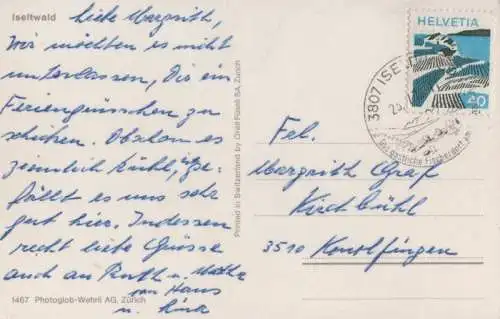 Iseltwald
Liebe Margrith,
Wir möchten es nicht
unterlassen, Dir ein
Feriengrüsschen zu
schicken. Obschon es
ziemlich kühl, ge-
fällt es uns sehr
gut hier. Indessen
recht liebe Grüsse
auch an Ruth u.
von Hans
u.
1467 Photoglob-Wehrli AG, Zürich
Printed in Switzerland by Orell Füssli SA, Zürich
HELVETIA
20
3807 ISE
Frl.
Margrith Graf
Kirchbühl
3510 Konolfingen